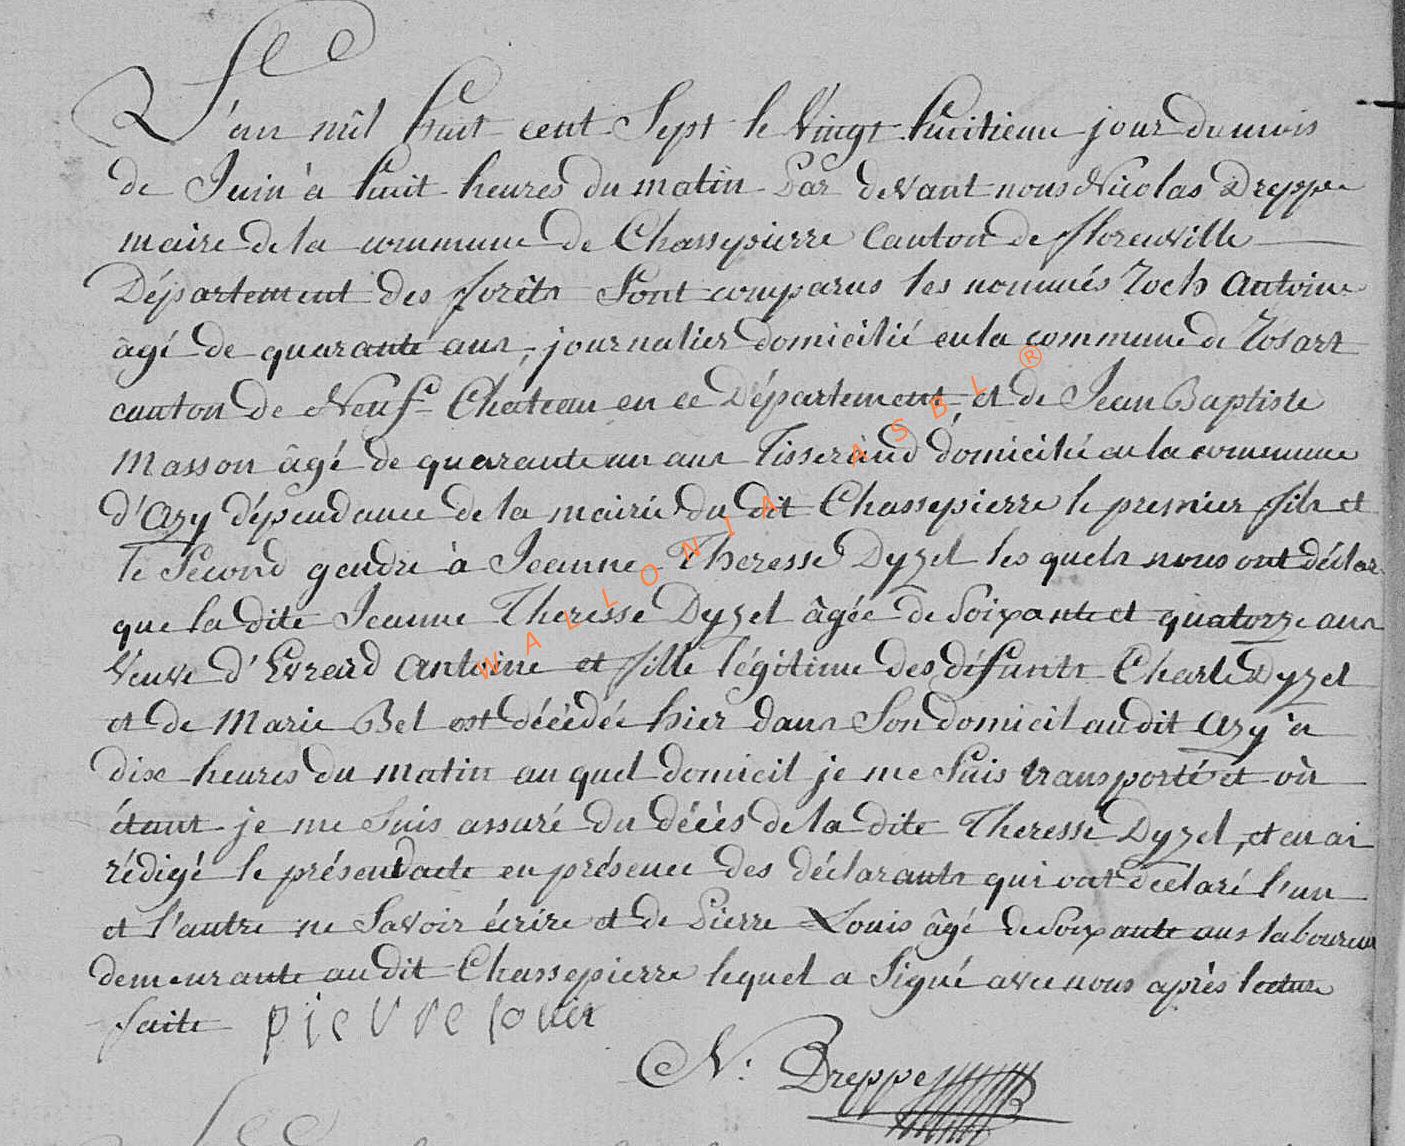 L'an mil huit cent Sept le Vingt huitieme jour du mois
de Juin à huit heures du matin Par devant nous Nicolas Dreppe
maire de la commune de Chassepierre Canton de florenville
Département des forêts Sont comparus les nommés Roch Antoine
âgé de quarante ans, journalier domicilié en la commune de Rosart
canton de Neuf Château en ce Département, et de Jean Baptiste
Masson âgé de quarante un ans Tisserand domicilié en la commune
d'Azy dépendance de la mairie du dit Chassepierre le premier fils et
le Second gendre à Jeanne Theresse Dyzel les quels nous ont déclar
que la dite Jeanne Theresse Dyzel âgée de Soixante et quatorze ans
Veuve d'Evrard Antoine et fille légitime des défunts Charle Dyzel
et de Marie Bel est décédée hier dans Son domicil au dit Azy à
dix heures du matin au quel domicil je me Suis transporté et où
étant je me Suis assuré du décès de la dite Theresse Dyzel, et en ai
rédigé le présent acte en présence des déclarants qui ont déclaré l'un
et l'autre ne Savoir écrire et de Pierre Louis âgé de Soixante ans laboureur
demeurante au dit Chassepierre lequel a Signé avec nous après lecture
faite pierre louis
N. Dreppe
WALLONIA ASBL ®